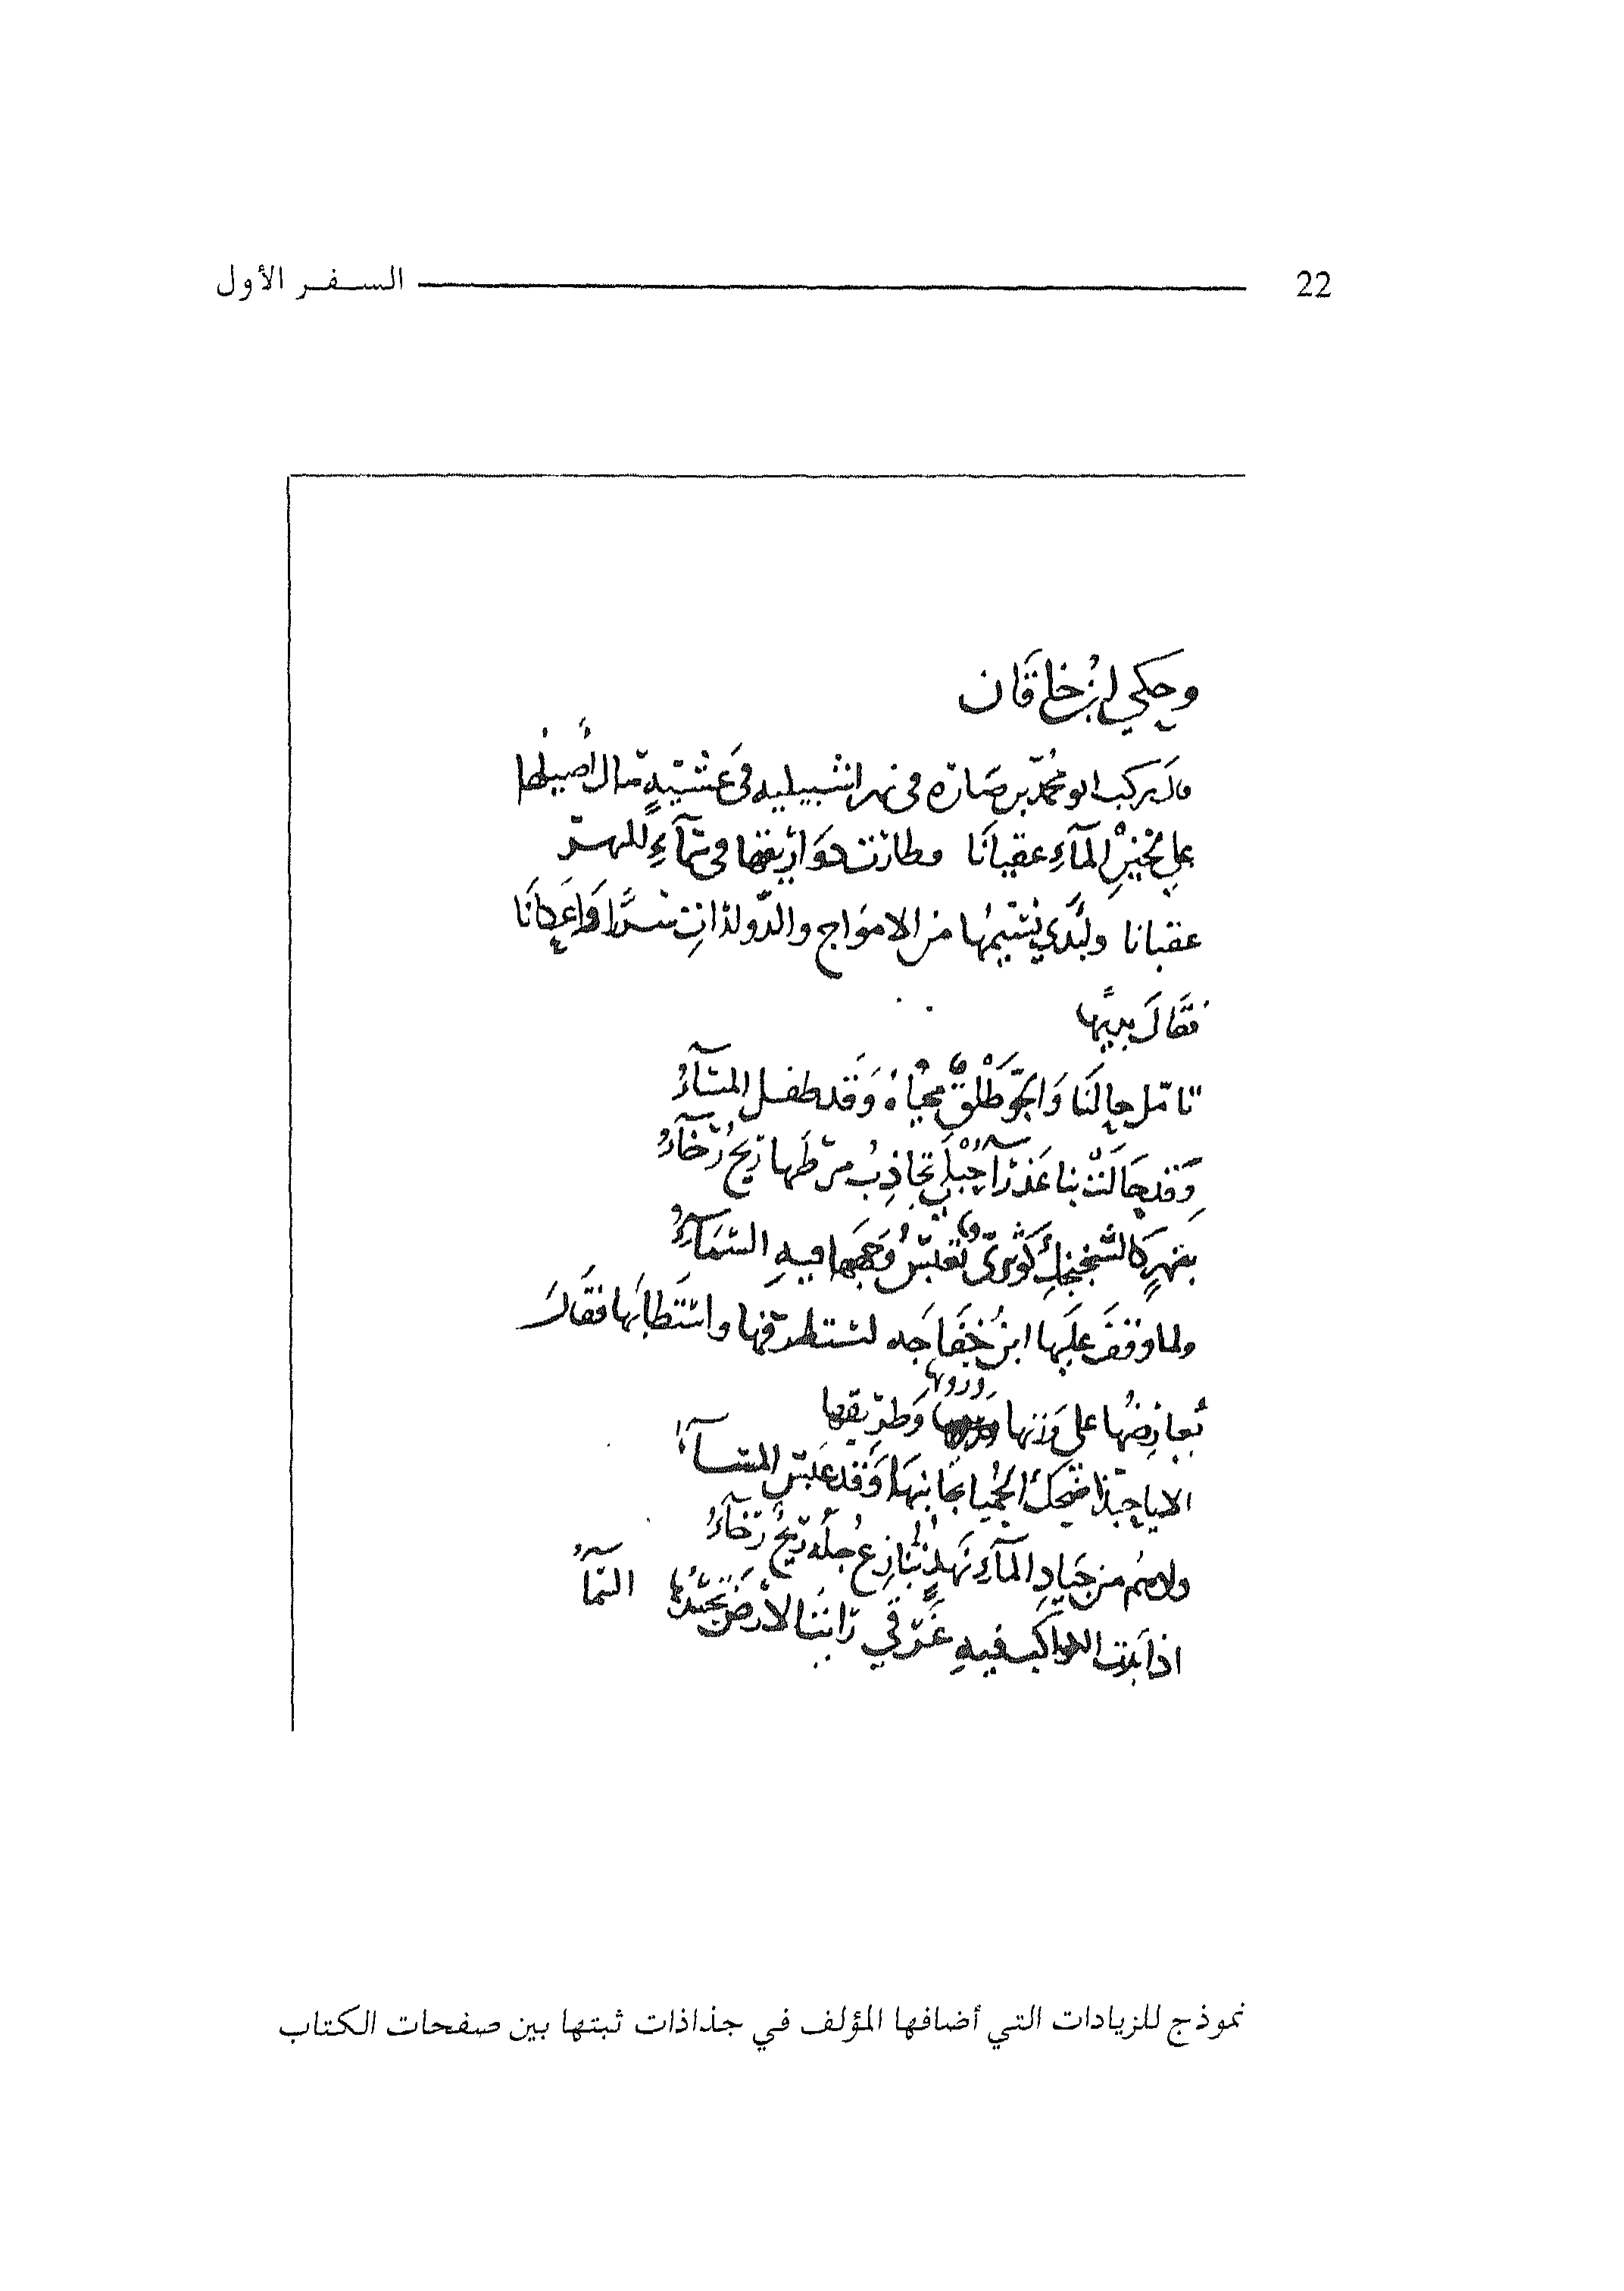 22 السفر الأول
وحكي ابن خاقان
قال ركب ابو محمّد بن صَارَه في نهر اشبيليه في عَشيّةٍ سَال أصيلُها
على لجين المآءِ عقيانَا وطارَت زَواريقها في سَمَآءِ للنهر
عقبانا وأبدَى نَسيمُها من الاموَاج والدّ سُرَرًا وَاعكانَا
فقَالَ بديهًا
تامّل حالنَا وَالجوّ طَلْقٌ محيّاهُ وَقد طفل المسَآءُ
وَقد جَالَتْ بنا عَذرَآ حُبْلَى تجَاذِبُ مِرْطَها رِيحٌ رُخآءُ
بنهرٍ كالسَّجنجلِ كَوثريّ تُعبّسُ وَجهَها فيهِ السّمَآءُ
ولما وقفَ عَلَيها ابنُ خَفَاجَه استظرفها واستَطابَها فقَالَ
يُعارضُها على وَزنها ورَويها وَطريقها
الا يا حبّذا ضَحكُ الحُميا بجَانبهَا وَقد عَبسَ المسَآءُ
وادهَم من جَيادِ المآءِ نَهدٍ تُنازِعُ جلّه رِيحٌ رُخآءُ
اذا بَدَت الكواكب فيهِ غَرقي رَايتَ الارْضَ تحسُدُها السّمآءُ
نموذج للزيادات التي أضافها المؤلف في جذاذات ثبتها بين صفحات الكتاب